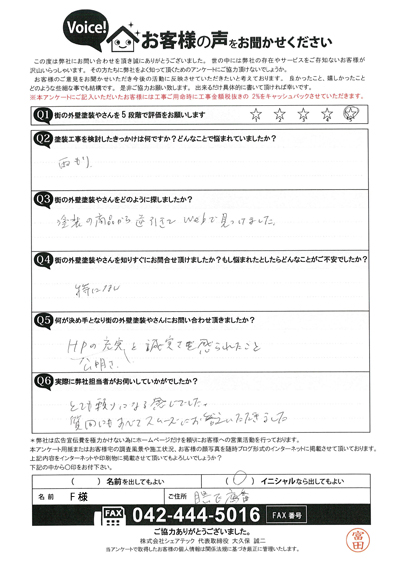 Voice!
お客様の声をお聞かせください
この度は弊社にお問い合わせを頂き誠にありがとうございました。 世の中には弊社の存在やサービスをご存知ないお客様が
沢山いらっしゃいます。 その方たちに弊社をよく知って頂くためのアンケートにご協力頂けないでしょうか。
お客様のご意見をお聞かせいただき今後の活動に反映させていただきたいと考えております。 良かったこと、嬉しかったこと
どのような些細な事でも結構です。 是非ご協力お願い致します。 出来るだけ具体的に書いて頂ければ幸いです。
※本アンケートにご記入いただいたお客様には工事ご用命時に工事金額税抜きの 2%をキャッシュバックさせていただきます。
Q1 街の外壁塗装やさんを5段階で評価をお願いします
☆ ☆ ☆ ☆ ☆
Q2 塗装工事を検討したきっかけは何ですか?どんなことで悩まれていましたか?
雨もり
Q3 街の外壁塗装やさんをどのように探しましたか?
塗装の商品から逆引きで Webで見つけました。
Q4 街の外壁塗装やさんを知りすぐにお問合せ頂けましたか?もし悩まれたとしたらどんなことがご不安でしたか?
特になし
Q5 何が決め手となり街の外壁塗装やさんにお問い合わせ頂きましたか?
HPの充実と誠実さを感られたこと
公明さ
Q6 実際に弊社担当者がお伺いしていかがでしたか?
とても頼りになる感じでした。
質問にもすべてスムーズにお答えいただきました
*弊社は広告宣伝費を極力かけない為にホームページだけを頼りにお客様への営業活動を行っております。
本アンケート用紙またはお客様宅の調査風景や施工状況、お客様の顔写真を随時ブログ形式のインターネットに掲載させて頂いております。
上記内容をインターネットや印刷物に掲載させて頂いてもよろしいでしょうか?
下記の中から〇印をお付下さい。
( ) 名前を出してもよい ( 〇 ) イニシャルなら出してもよい
名前 F 様 ご住所
FAX 042-444-5016 FAX 番号
ご協力ありがとうございました。
株式会社シェアテック 代表取締役 大久保 誠二
当アンケートで取得したお客様の個人情報は関係法規に基づき厳正に管理いたします。
富田